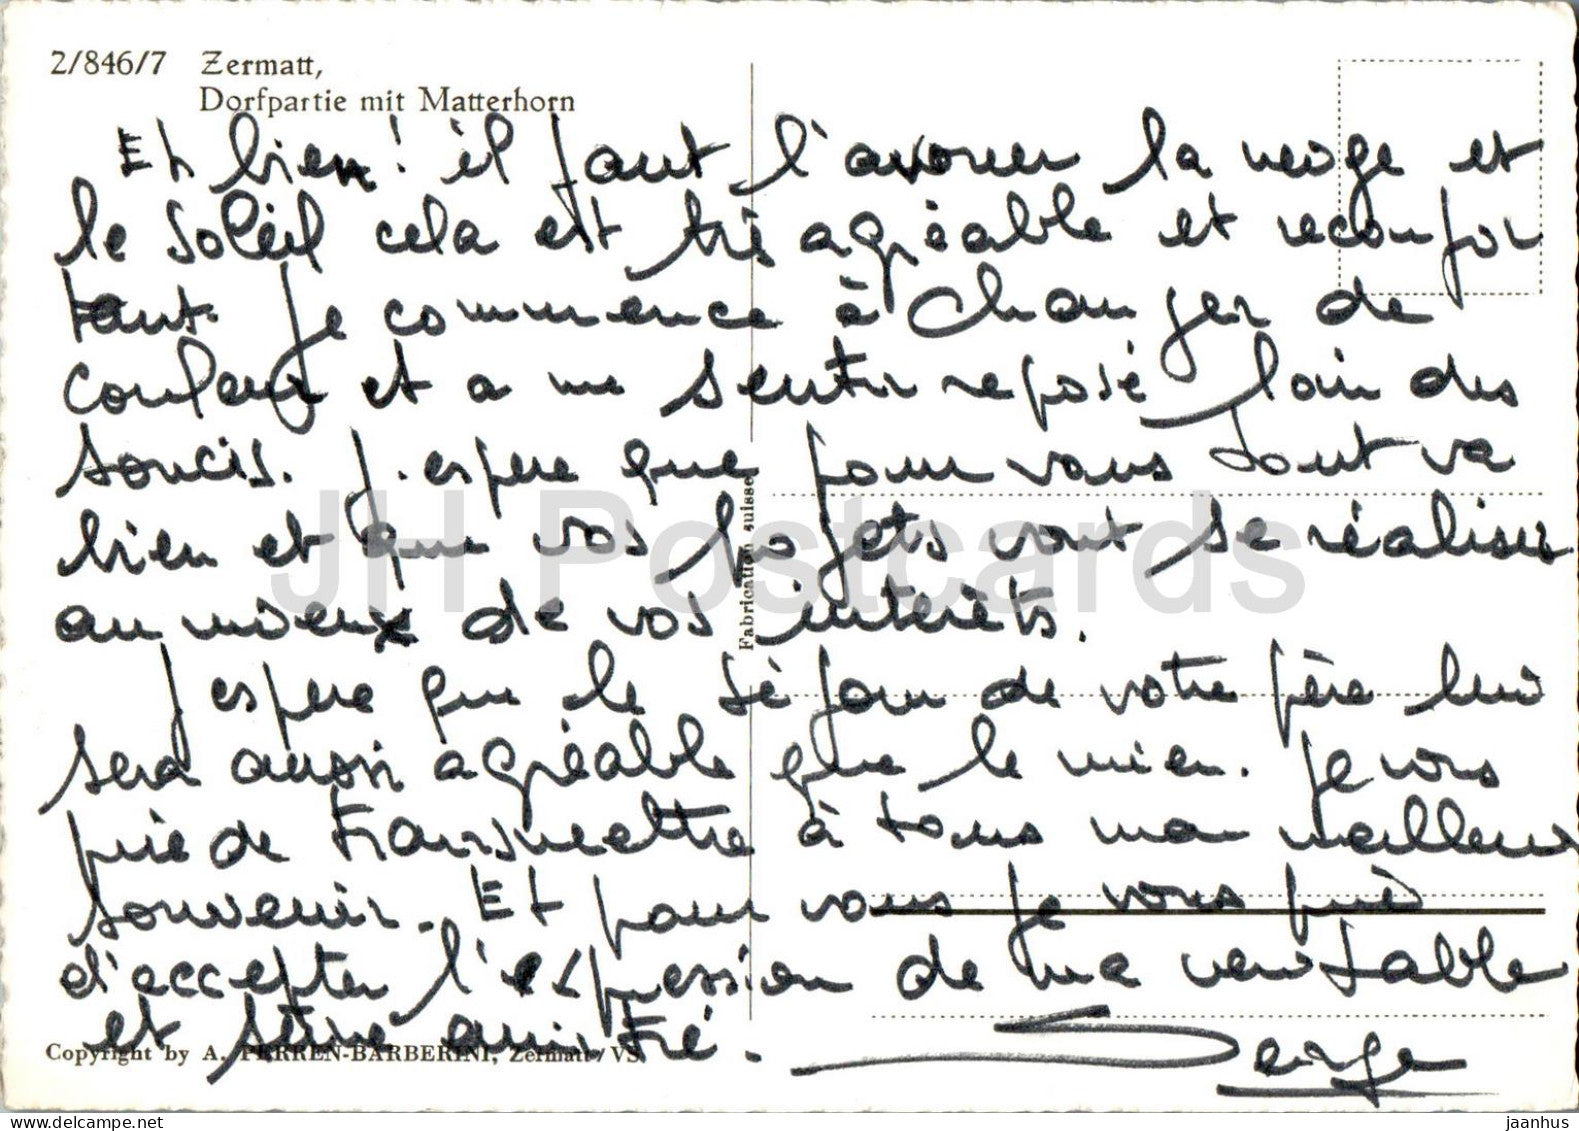 2/846/7 Zermatt,
Dorfpartie mit Matterhorn
Et bien! il faut l'avouer la neige et
le soleil cela est très agréable et reconfor
tant. Je commence à changer de
couleur et a me sentir reposé loin des
soucis. J.espere que pour vous tout va
bien et que vos projets vont se réaliser
au mieux de vos intérêts.
J espere que le séjour de votre père lui
sera aussi agréable que le mien. Je vous
prie de transmettre à tous mon meilleur
souvenir. Et pour vous je vous prie
d'accepter l'expression de ma veritable
et amitié.
Serge
Fabrication suisse
Copyright by A. PERREN-BARBERINI, Zermatt/VS.
JH Postcards
jaanhus
delcampe.net